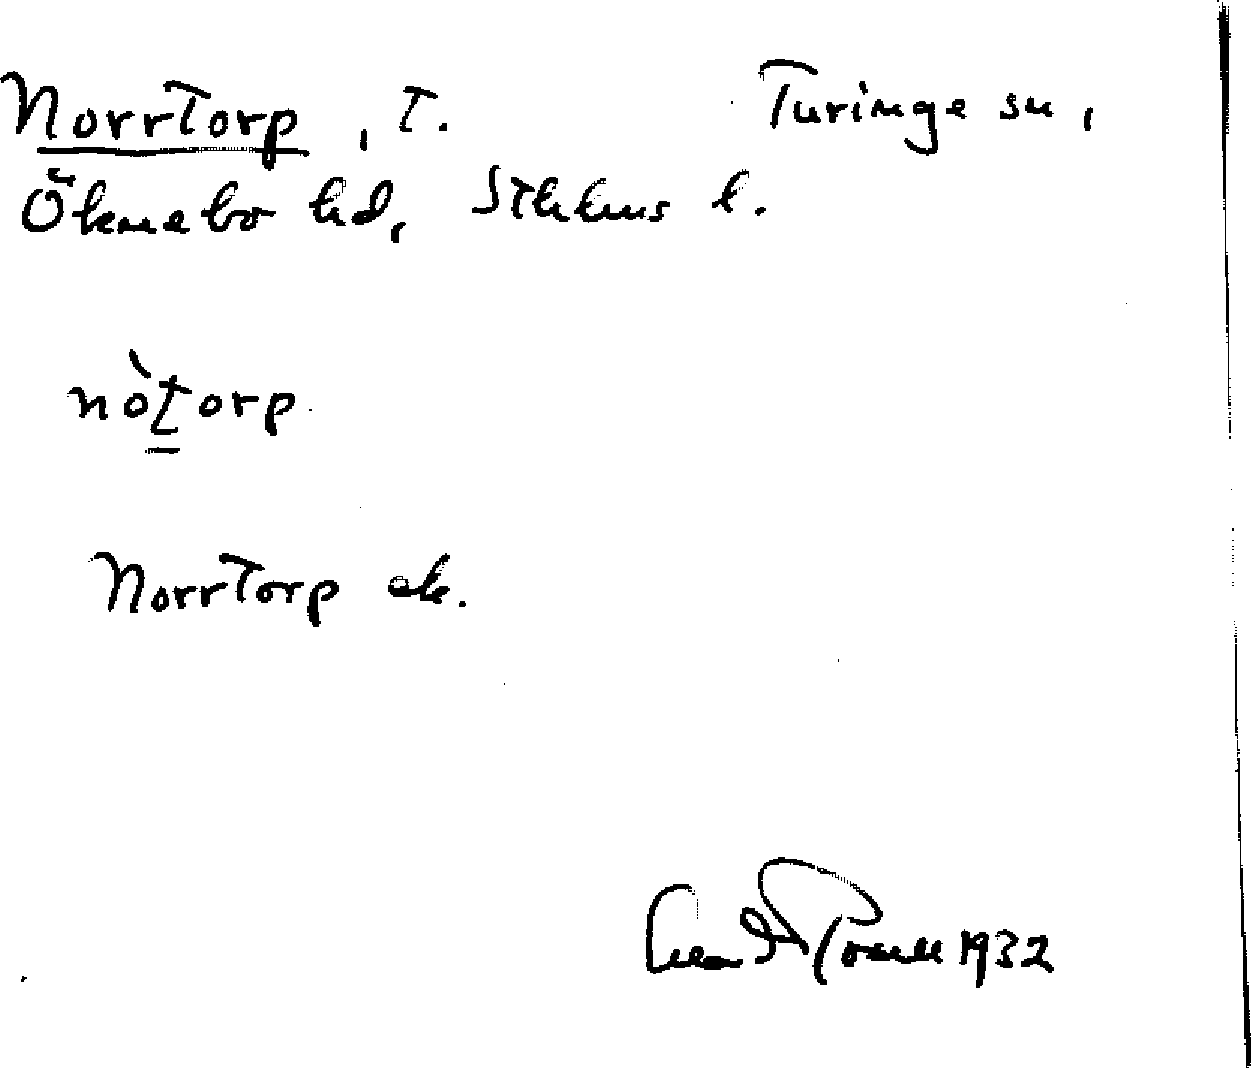 Norrtorp, T. Turinge sn,
Öknebo hd, Sthlms l.
nòtorp
Norrtorp ek.
1932